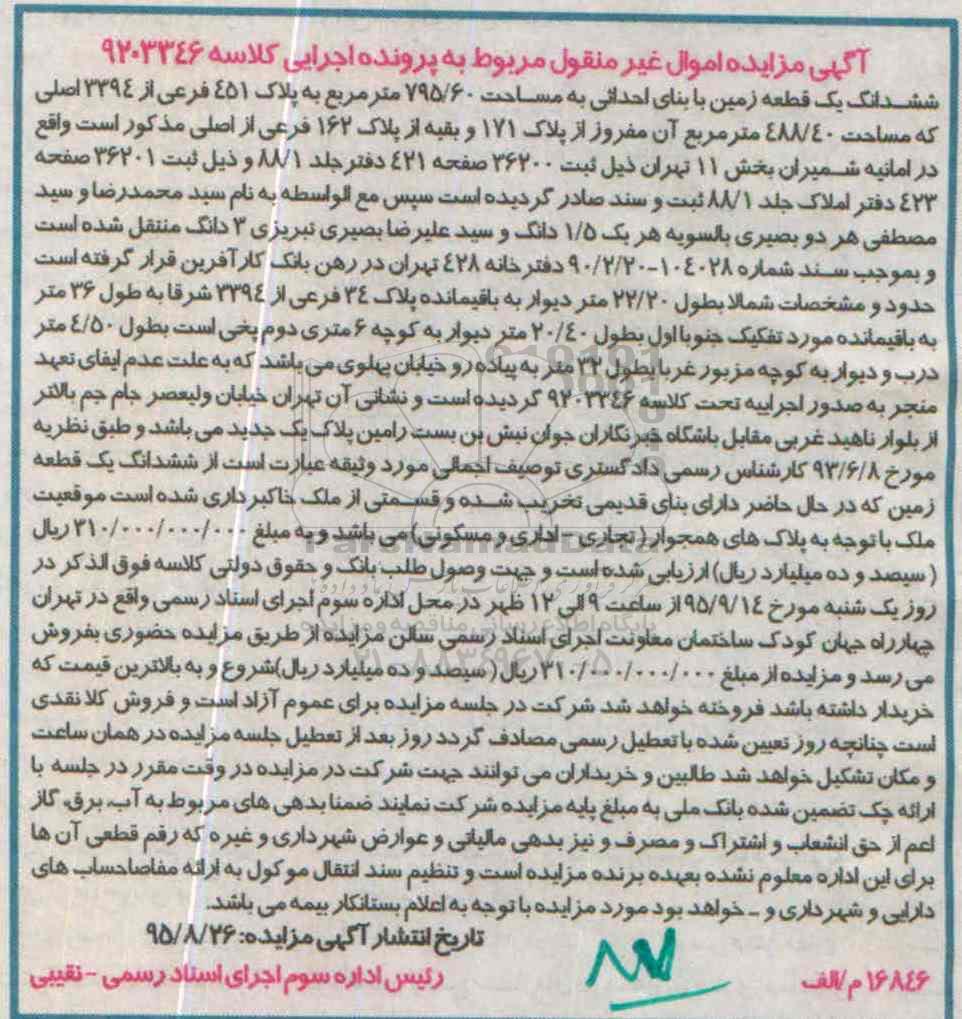 آگهی مزایده اموال غیر منقول مربوط به پرونده اجرایی کلاسه ۹۲۰۳۳۴۶
ششدانگ یک قطعه زمین با بنای احداثی به مساحت ۷۹۵/۶۰ متر مربع به پلاک ۴۵۱ فرعی از ۳۳۹۴ اصلی
که مساحت ۴۸۸/۴۰ مترمربع آن مفروز از پلاک ۱۷۱ و بقیه از پلاک ۱۶۲ فرعی از اصلی مذکور است واقع
در امانیه شمیران بخش ۱۱ تهران ذیل ثبت ۳۶۲۰۰ صفحه ۴۲۱ دفتر جلد ۸۸/۱ و ذیل ثبت ۳۶۲۰۱ صفحه
۴۲۳ دفتر املاک جلد ۸۸/۱ ثبت و سند صادر گردیده است سپس مع الواسطه به نام سید محمدرضا و سید
مصطفی هر دو بصیری بالسویه هر یک ۱/۵ دانگ و سید علیرضا بصیری تبریزی ۳ دانگ منتقل شده است
و بموجب سند شماره ۱۰۴۰۲۸-۹۰/۲/۲۰ دفترخانه ۴۲۸ تهران در رهن بانک کارآفرین قرار گرفته است
حدود و مشخصات شمالا بطول ۲۲/۲۰ متر دیوار به باقیمانده پلاک ۳۴ فرعی از ۳۳۹۴ شرقا به طول ۳۶ متر
به باقیمانده مورد تفکیک جنوبا اول بطول ۲۰/۴۰ متر دیوار به کوچه ۶ متری دوم پخی است بطول ۴/۵۰ متر
درب و دیوار به کوچه مزبور غربا بطول ۳۲ متر به پیاده رو خیابان پهلوی می باشد که به علت عدم ایفای تعهد
منجر به صدور اجراییه تحت کلاسه ۹۲۰۳۳۴۶ گردیده است و نشانی آن تهران خیابان ولیعصر جام جم بالاتر
از بلوار ناهید غربی مقابل باشگاه خبرنگاران جوان نبش بن بست رامین پلاک یک جدید می باشد و طبق نظریه
مورخ ۹۳/۶/۸ کارشناس رسمی دادگستری توصیف اجمالی مورد وثیقه عبارت است از ششدانگ یک قطعه
زمین که در حال حاضر دارای بنای قدیمی تخریب شده و قسمتی از ملک خاکبرداری شده است موقعیت
ملک با توجه به پلاک های همجوار (تجاری - اداری و مسکونی) می باشد و به مبلغ ۳۱۰/۰۰۰/۰۰۰/۰۰۰ ریال
(سیصد و ده میلیارد ریال) ارزیابی شده است و جهت وصول طلب بانک و حقوق دولتی کلاسه فوق الذکر در
روز یک شنبه مورخ ۹۵/۹/۱۴ از ساعت ۹ الی ۱۲ ظهر در محل اداره سوم اجرای اسناد رسمی واقع در تهران
چهارراه جهان کودک ساختمان معاونت اجرای اسناد رسمی سالن مزایده از طریق مزایده حضوری بفروش
می رسد و مزایده از مبلغ ۳۱۰/۰۰۰/۰۰۰/۰۰۰ ریال (سیصد و ده میلیارد ریال) شروع و به بالاترین قیمت که
خریدار داشته باشد فروخته خواهد شد شرکت در جلسه مزایده برای عموم آزاد است و فروش کلا نقدی
است چنانچه روز تعیین شده با تعطیل رسمی مصادف گردد روز بعد از تعطیل جلسه مزایده در همان ساعت
و مکان تشکیل خواهد شد طالبین و خریداران می توانند جهت شرکت در مزایده در وقت مقرر در جلسه با
ارائه چک تضمین شده بانک ملی به مبلغ پایه مزایده شرکت نمایند ضمنا بدهی های مربوط به آب، برق، گاز
اعم از حق انشعاب و اشتراک و مصرف و نیز بدهی مالیاتی و عوارض شهرداری و غیره که رقم قطعی آن ها
برای این اداره معلوم نشده بعهده برنده مزایده است و تنظیم سند انتقال موکول به ارائه مفاصاحساب های
دارایی و شهرداری و - خواهد بود مورد مزایده با توجه به اعلام بستانکار بیمه می باشد.
تاریخ انتشار آگهی مزایده: ۹۵/۸/۲۶
۱۶۸۴۶ م/الف
رئیس اداره سوم اجرای اسناد رسمی - نقیبی